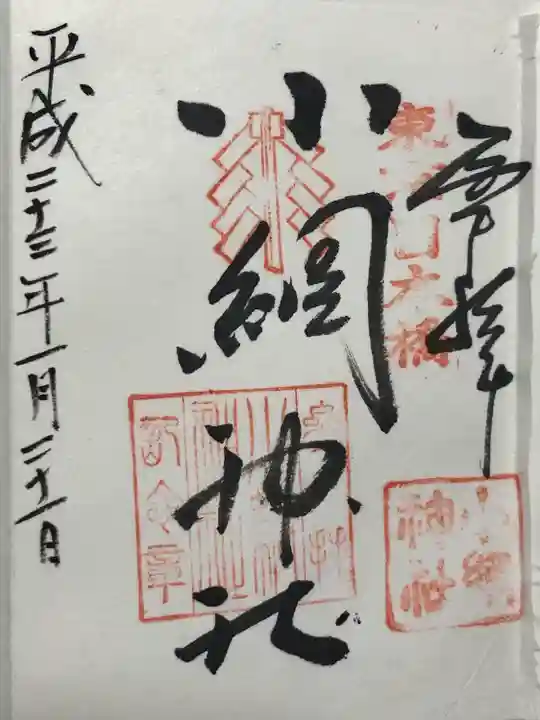 奉拝
東京日本橋
小網神社
小網神社
平成二十三年一月二十一日